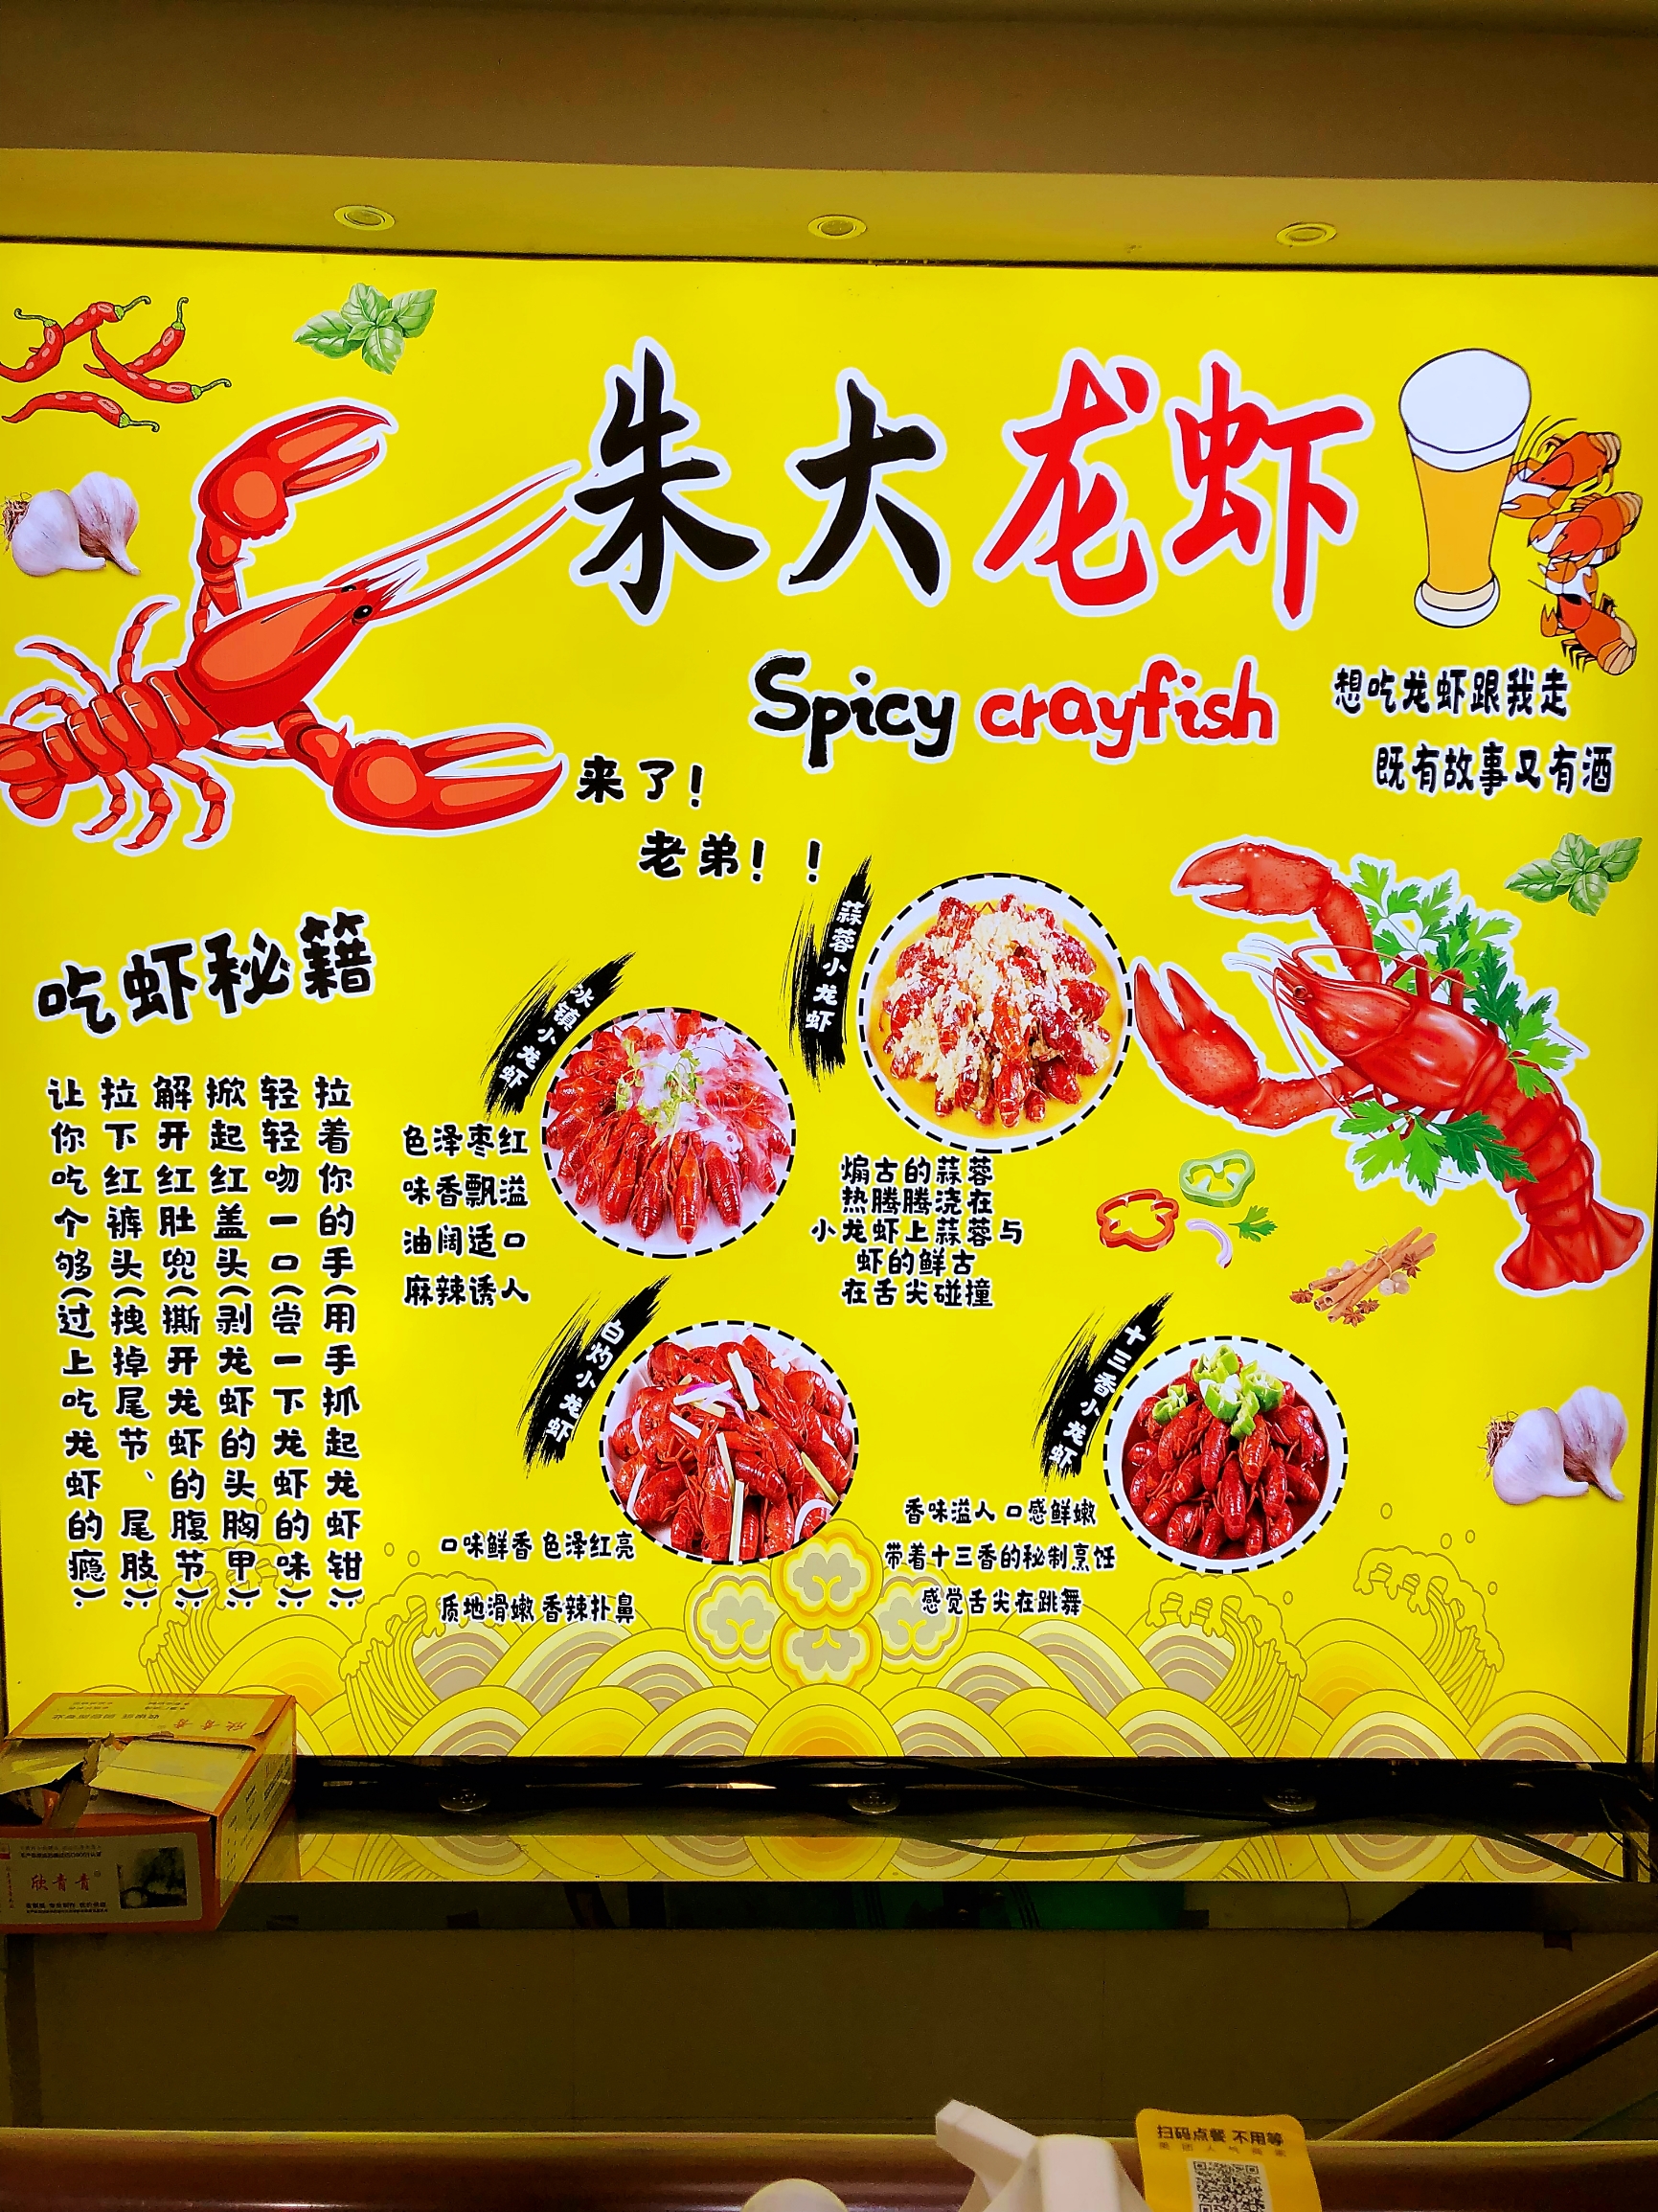 朱大龙虾
Spicy crayfish
想吃龙虾跟我走
既有故事又有酒
来了!
老弟!!
吃虾秘籍
拉着你的手(用手抓起龙虾钳);
轻轻吻一口(尝一下龙虾的味);
掀起红盖头(剥龙虾的头胸甲);
解开红肚兜(撕开龙虾的腹节);
拉下红裤头(拽掉尾节、尾肢);
让你吃个够(过上吃龙虾的瘾);
冰镇小龙虾
色泽枣红
味香飘溢
油阔适口
麻辣诱人
蒜蓉小龙虾
煸古的蒜蓉
热腾腾浇在
小龙虾上蒜蓉与
虾的鲜古
在舌尖碰撞
白灼小龙虾
口味鲜香 色泽红亮
质地滑嫩 香辣扑鼻
十三香小龙虾
香味溢人 口感鲜嫩
带着十三香的秘制烹饪
感觉舌尖在跳舞
欣青青
扫码点餐 不用等